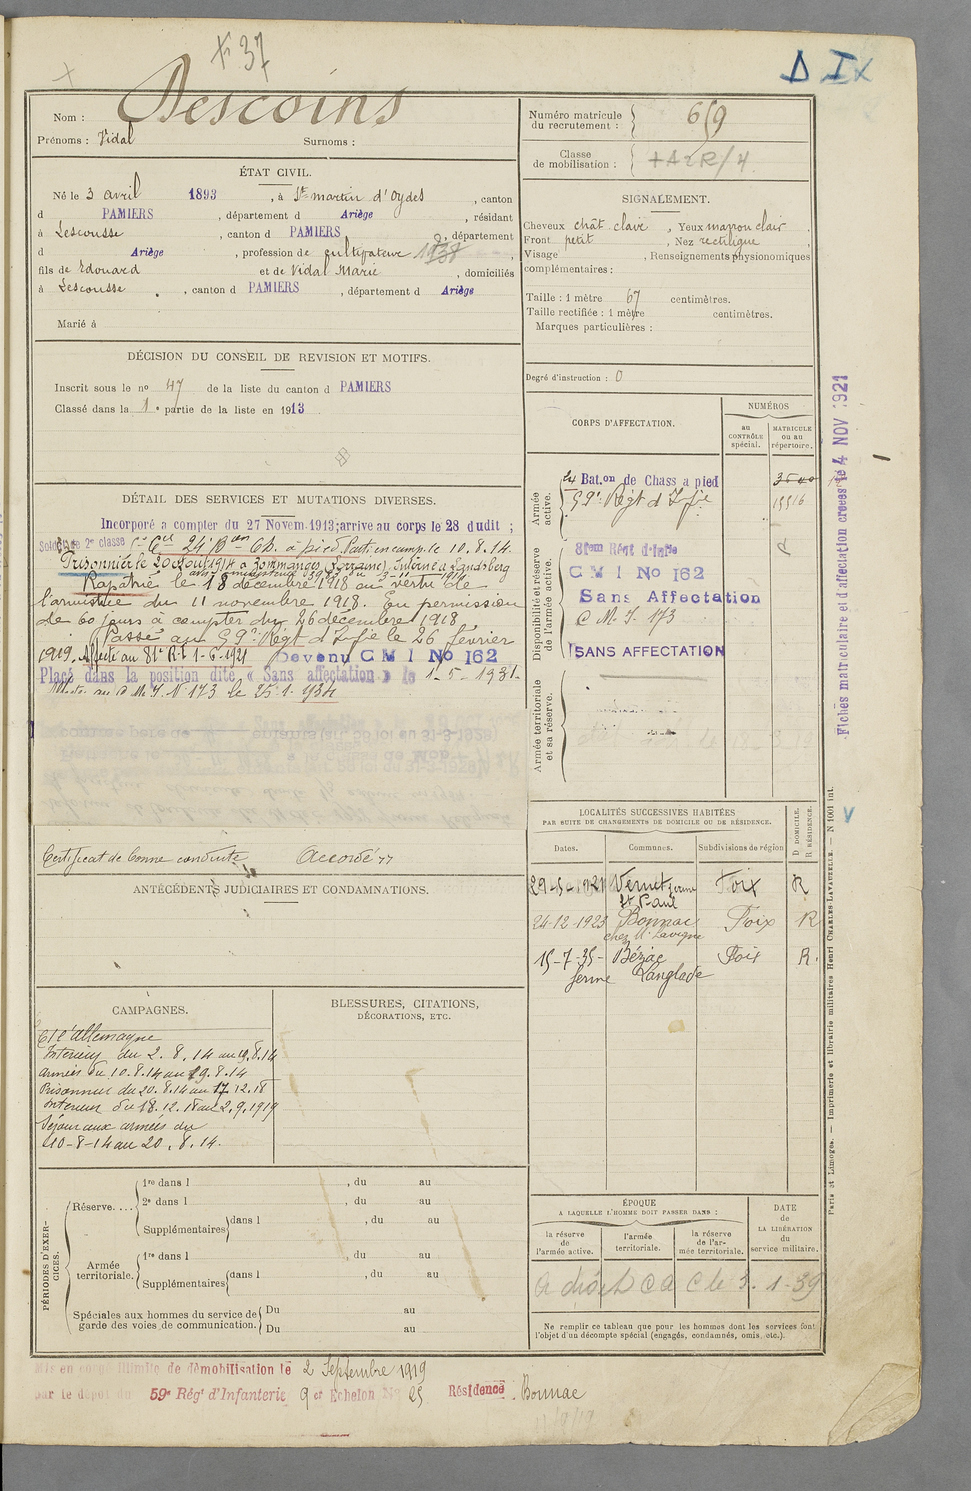 + 37
D IX
Nom : Descoins
Prénoms : Vidal Surnoms :
ÉTAT CIVIL.
Né le 3 avril 1893, à St martin d'Oydes, canton
d PAMIERS, département d Ariège, résidant
à Lescousse, canton d PAMIERS, département
d Ariège, profession de cultivateur
fils de Edouard et de Vidal Marie, domiciliés
à Lescousse, canton d PAMIERS, département d Ariège
Marié à
DÉCISION DU CONSEIL DE REVISION ET MOTIFS.
Inscrit sous le no 47 de la liste du canton d PAMIERS
Classé dans la 1e partie de la liste en 1913
DÉTAIL DES SERVICES ET MUTATIONS DIVERSES.
Incorporé à compter du 27 Novem. 1913; arrivé au corps le 28 dudit ;
Soldat de 2e classe 24 Bon Ch. à pied. Parti en camp. le 10.8.14.
Prisonnier le 20 Août 1914 à Zommanges (Lorraine). Interné à Landsberg
Rapatrié le 18 décembre 1918 en vertu de
l'armistice du 11 novembre 1918. En permission
de 60 jours à compter du 26 décembre 1918
Passé au 59e Régt d'Infie le 26 février
1919. Affecté au 81e R.I. 1-6-1921 Devenu C M I No 162
Placé dans la position dite « Sans affectation » le 1-5-1931.
au C.M.I. No 173 le 25.1.1934
Certificat de bonne conduite Accordé
ANTÉCÉDENTS JUDICIAIRES ET CONDAMNATIONS.
CAMPAGNES.
Ct l'allemagne
Intérieur du 2.8.14 au 9.8.14
armées du 10.8.14 au 19.8.14
Prisonnier du 20.8.14 au 17.12.18
Intérieur du 18.12.18 au 2.9.1919
Séjour aux armées du
10-8-14 au 20.8.14.
BLESSURES, CITATIONS,
DÉCORATIONS, ETC.
PÉRIODES D'EXERCICES.
Réserve....
1re dans l , du au
2e dans l , du au
Supplémentaires dans l , du au
Armée territoriale.
1re dans l , du au
Supplémentaires dans l , du au
Spéciales aux hommes du service de garde des voies de communication. Du au
Du au
Mis en congé illimité de démobilisation le 2 Septembre 1919
par le dépôt du 59e Régt d'Infanterie 9e Echelon No 25 Résidence : Bonnac
Numéro matricule
du recrutement : 659
Classe
de mobilisation :
SIGNALEMENT.
Cheveux chât. clair, Yeux marron clair
Front petit, Nez rectiligne,
Visage , Renseignements physionomiques
complémentaires :
Taille : 1 mètre 67 centimètres.
Taille rectifiée : 1 mètre centimètres.
Marques particulières :
Degré d'instruction : 0
CORPS D'AFFECTATION.
NUMÉROS
au CONTRÔLE spécial.
MATRICULE ou au répertoire.
Armée active.
24 Bat.on de Chass à pied
59e Régt d'Infie 15516
Disponibilité et réserve de l'armée active.
81em Régt d'Infie
C M I No 162
Sans Affectation
C.M.I. 173
SANS AFFECTATION
Armée territoriale et sa réserve.
LOCALITÉS SUCCESSIVES HABITÉES
PAR SUITE DE CHANGEMENTS DE DOMICILE OU DE RÉSIDENCE.
Dates. Communes. Subdivisions de région D. DOMICILE. R. RÉSIDENCE.
29-5-1921 Vernet ferme St Paul Foix R
24-12-1923 Bonnac chez Mr Lavigne Foix R
15-7-35- Bézac ferme Langlade Foix R.
ÉPOQUE
A LAQUELLE L'HOMME DOIT PASSER DANS :
la réserve de l'armée active.
l'armée territoriale.
la réserve de l'armée territoriale.
DATE
de
LA LIBÉRATION
du
service militaire.
Ne remplir ce tableau que pour les hommes dont les services font
l'objet d'un décompte spécial (engagés, condamnés, omis, etc.).
Fiches matriculaire et d'affectation créées le 4 NOV 1921
Paris et Limoges. — Imprimerie et librairie militaires Henri CHARLES-LAVAUZELLE. — N 1001 int.